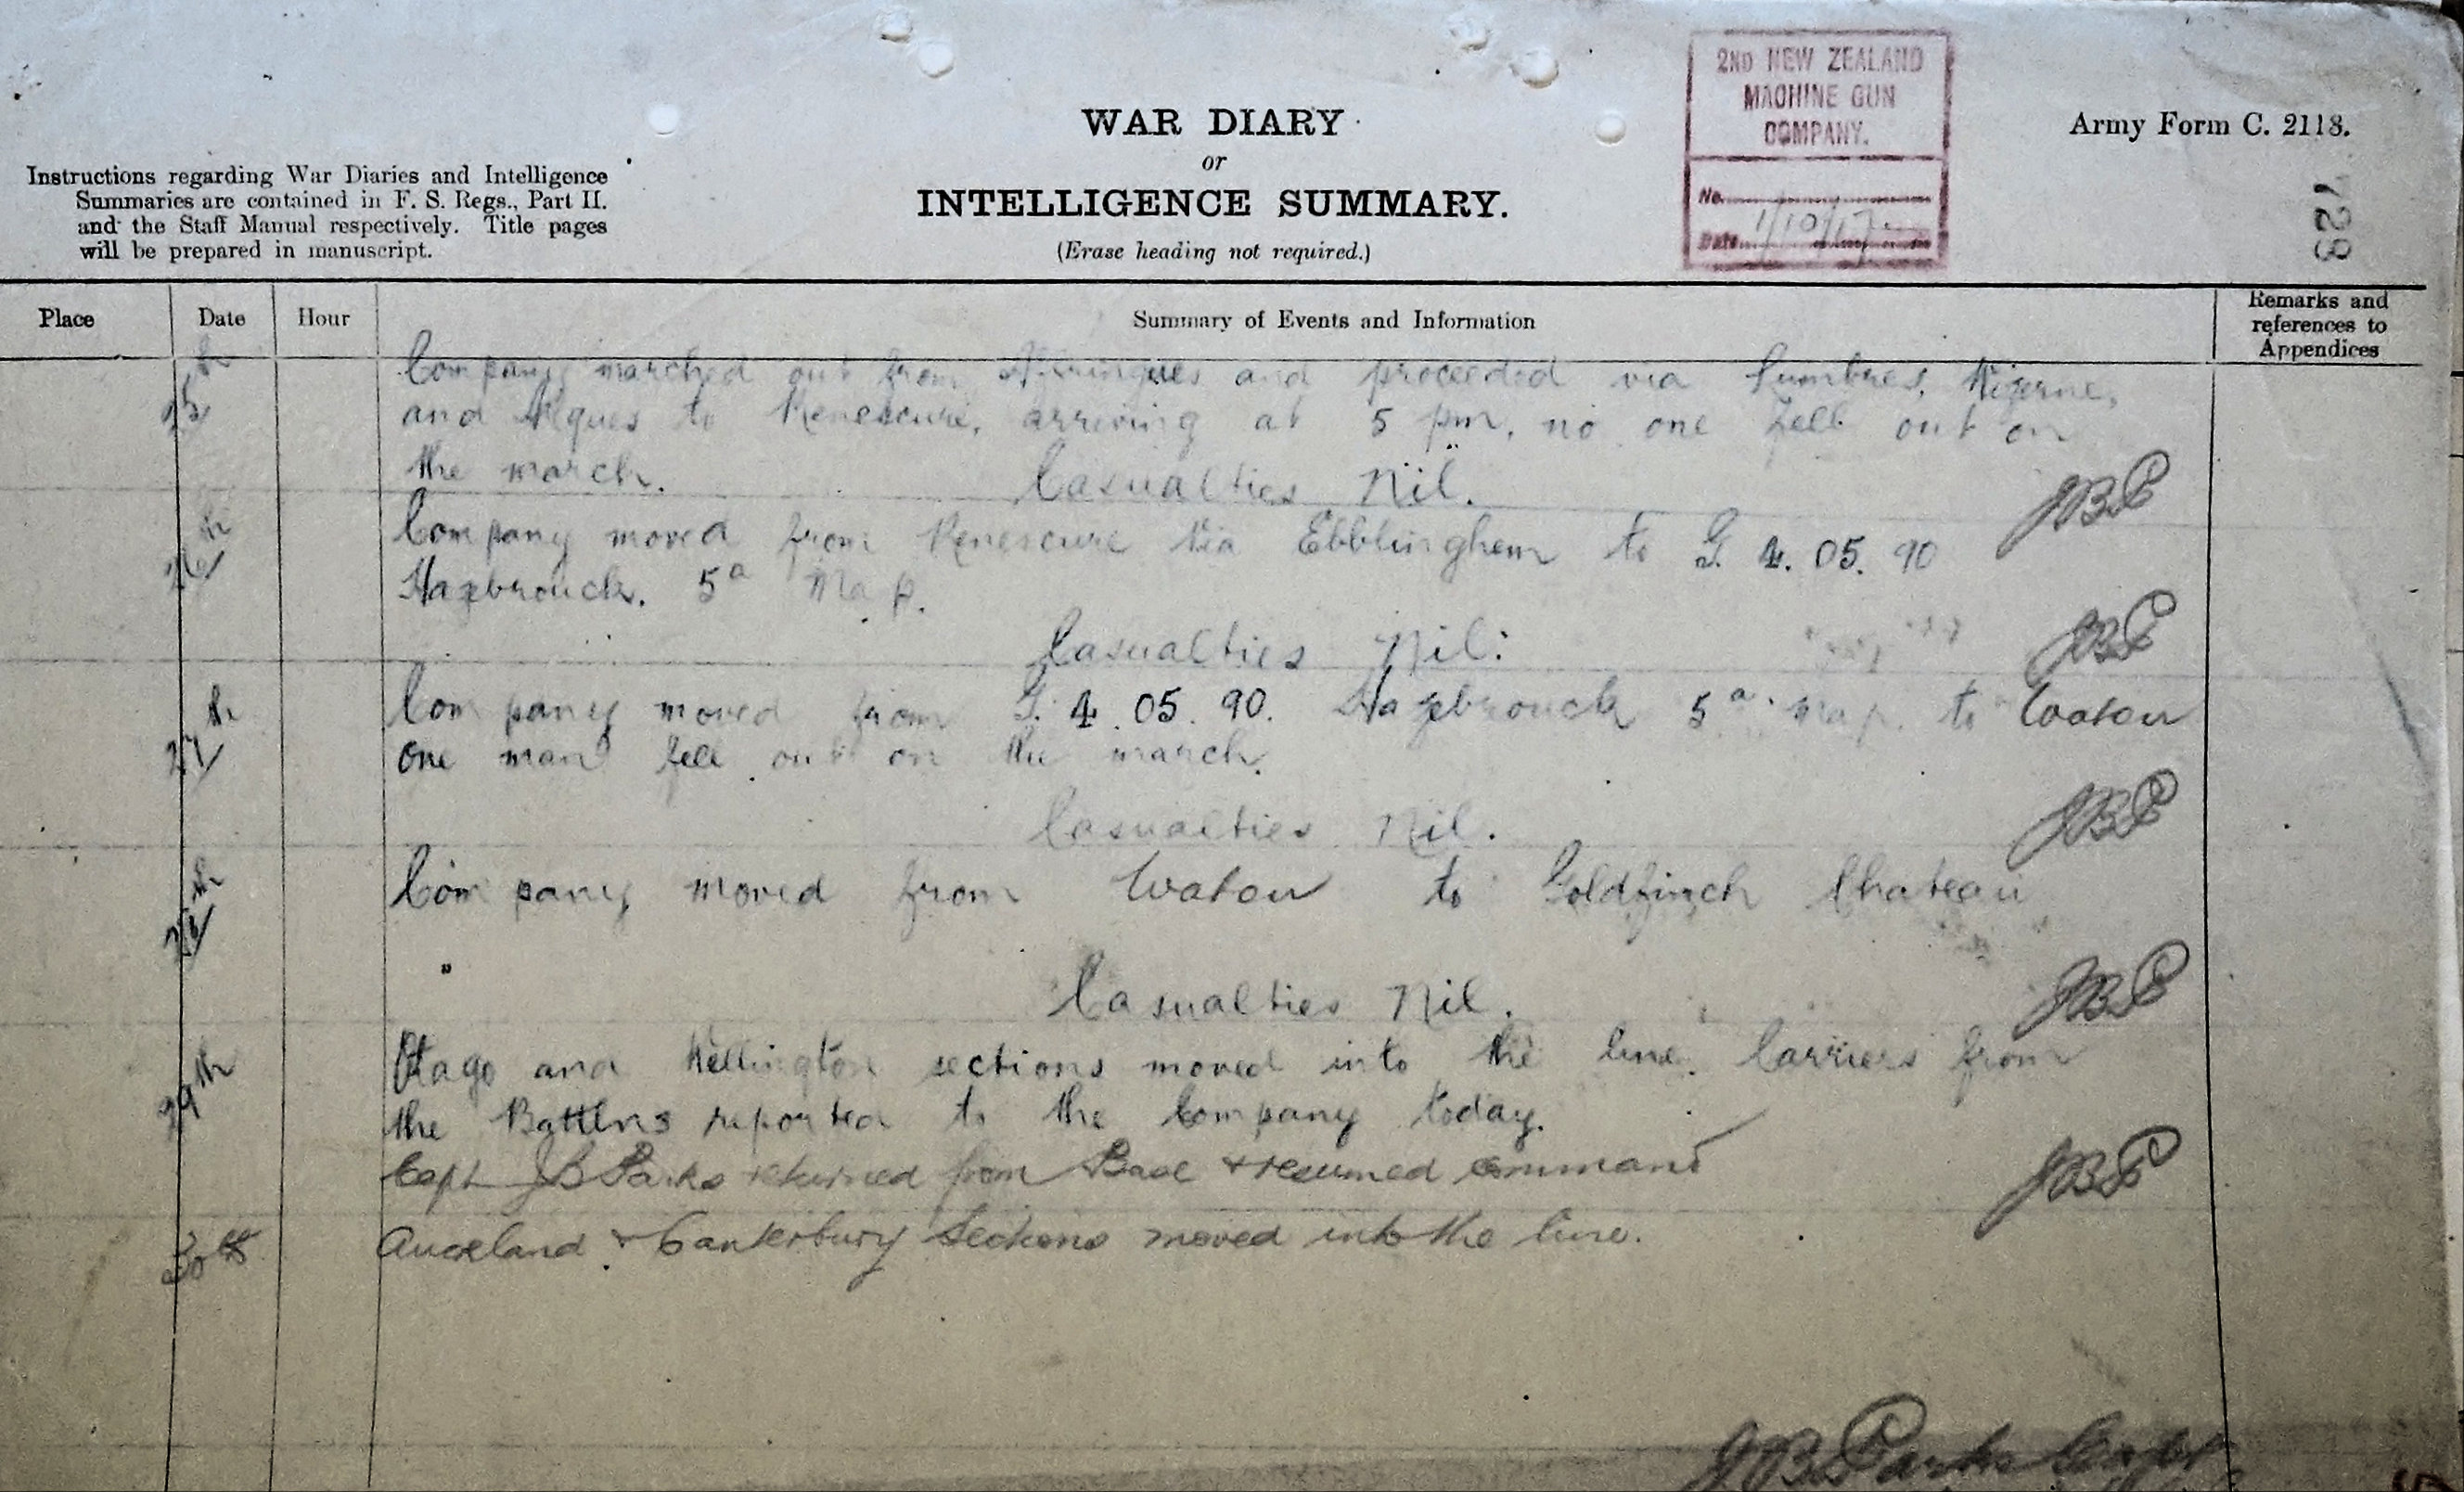 2ND NEW ZEALAND
MACHINE GUN
COMPANY.
No.
Date 1/10/17
WAR DIARY
or
INTELLIGENCE SUMMARY.
(Erase heading not required.)
Army Form C. 2118.
728
Instructions regarding War Diaries and Intelligence
Summaries are contained in F. S. Regs., Part II.
and the Staff Manual respectively. Title pages
will be prepared in manuscript.
Place Date Hour Summary of Events and Information Remarks and
references to
Appendices
25th Company marched out from Affringues and proceeded via Lumbres, Wizerne,
and Arques to Renescure, arriving at 5 pm, no one fell out on
the march. Casualties Nil. JBP
26th Company moved from Renescure via Ebblinghem to G. 4. 05. 90
Hazebrouck. 5a Map.
Casualties Nil: JBP
27th Company moved from G. 4. 05. 90. Hazebrouck 5a. Map. to Watou
one man fell out on the march.
Casualties Nil. JBP
28th Company moved from Watou to Goldfinch Chateau
"
Casualties Nil. JBP
29th Otago and Wellington sections moved into the line. Carriers from
the Battlns reported to the Company today.
Capt JB Parks returned from Base & resumed command JBP
30th Auckland & Canterbury Sections moved into the line.
JB Parks Capt